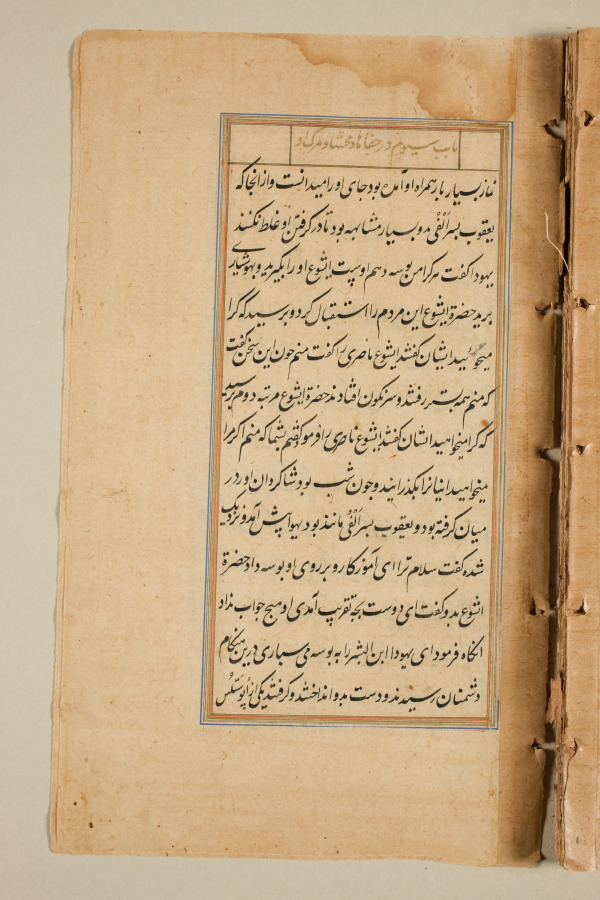 باب سیوم در جفاها و مرگ او
نماز بسیار بار همراه او آمده بود جای او را میدانست و از انجا که
یعقوب بسر الفی بدو بسیار مشابهه بود تا در گرفتن او غلط نکنند
یهودا گفت هر کرا من بوسه دهم اوست ایشوع او را بگیرید و بهوشیاری
برید حضرة ایشوع این مردم را استقبال کرد و برسید که کرا
میخواهید ایشان گفتند ایشوع ناصری را گفت منم چون این سخن گفت
که منم همه بس رفتند و سرنگون افتادند حضرة ایشوع مرتبه دوم برسید
که کرا میخواهید ایشان گفتند ایشوع ناصری را فرمود گفتم بشما که منم اگر مرا
میخواهید اینانرا بگذرانید و چون شب بود شاگردان او را در
میان گرفته بود و یعقوب بسر الفی مانند بود یهودا پیش آمد و نزدیک
شده گفت سلام ترا ای آموزگار و بر روی او بوسه داد حضرة
ایشوع بدو گفت ای دوست بچه تقریب آمدی او هیچ جواب نداد
انگاه فرمود ای یهودا ابن البشر را به بوسه می سپاری درین هنگام
دشمنان رسیدند و دست بدو انداختند و گرفتند یکی از